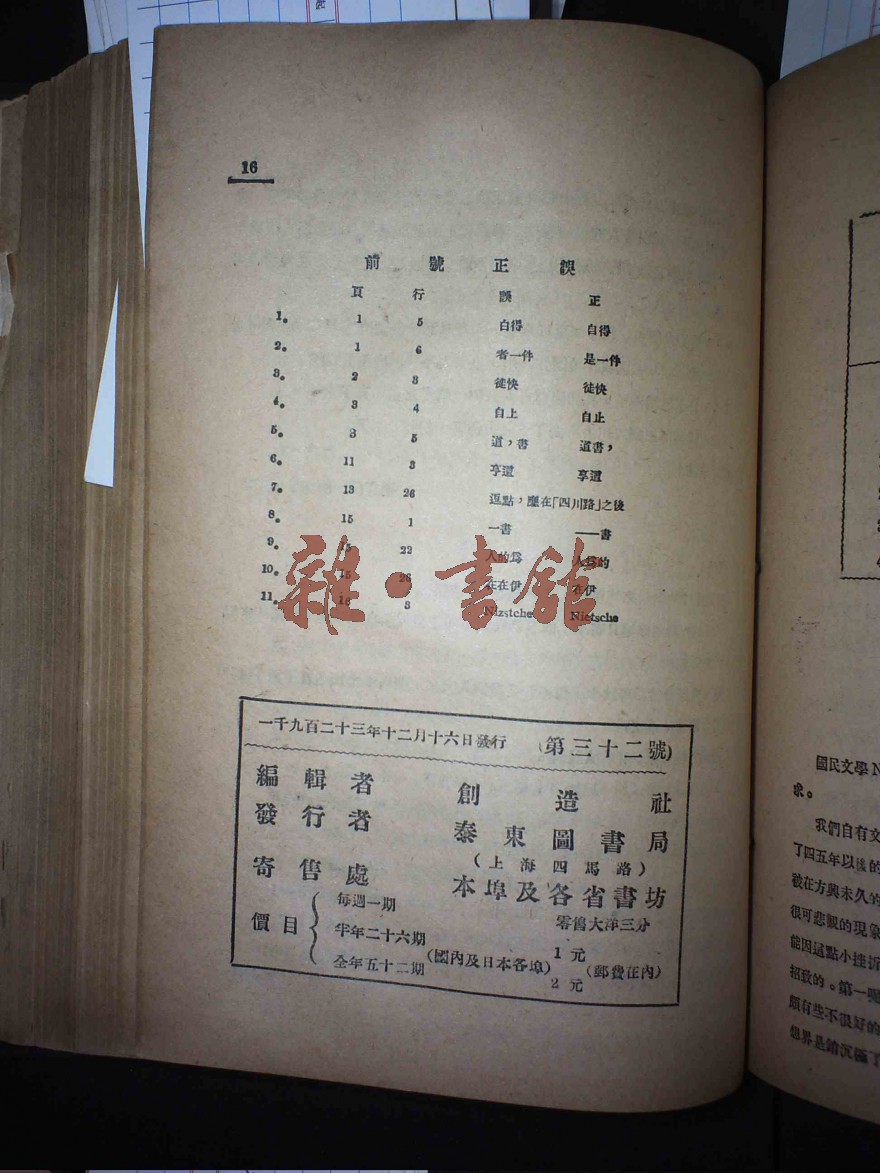 16
前號正誤
頁 行 誤 正
1. 1 5 白得 自得
2. 1 6 者一件 是一件
3. 2 3 徒快 徒快
4. 3 4 自上 自止
5. 3 5 道，書 道書，
6. 11 3 亨還 享還
7. 13 26 逗點，應在「四川路」之後
8. 15 1 一書 ——書
9. 15 22 人的爲 人爲的
10. 15 26 在在伊 在伊
11. 16 3 Nizstche Nietsche
雜·書館
一千九百二十三年十二月十六日發行 （第三十二號）
編輯者 創造社
發行者 泰東圖書局
（上海四馬路）
寄售處 本埠及各省書坊
價目
每週一期 零售大洋三分
半年二十六期 1元
(國內及日本各埠) (郵費在內)
全年五十二期 2元
國民文學
求。
我們自有文
了四五年以後的
被在方興未久的
很可悲觀的現象
能因這點小挫折
招致的。第一
頗有些不很好的
想界是銷沉極了